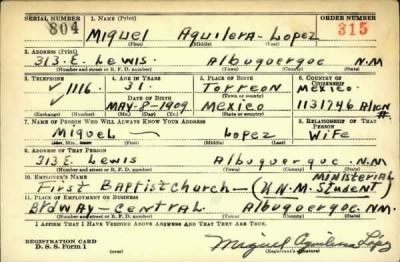 SERIAL NUMBER 1. NAME (Print) ORDER NUMBER
804 Miguel Aguilera-Lopez 315
(First) (Middle) (Last)
2. ADDRESS (Print)
313 E. Lewis Albuquerque N.M
(Number and street or R. F. D. number) (Town) (County) (State)
3. TELEPHONE 4. AGE IN YEARS 5. PLACE OF BIRTH 6. COUNTRY OF CITIZENSHIP
1116 31. Torreon Mexico.
DATE OF BIRTH (Town or county)
May-8-1909 Mexico 1131746 Alien #
(Mo.) (Day) (Yr.) (State or country)
7. NAME OF PERSON WHO WILL ALWAYS KNOW YOUR ADDRESS 8. RELATIONSHIP OF THAT PERSON
Miguel Lopez Wife
(First) (Middle) (Last)
9. ADDRESS OF THAT PERSON
313 E. Lewis Albuquerque. N.M
(Number and street or R. F. D. number) (Town) (County) (State)
10. EMPLOYER'S NAME Ministerial
First Baptist church - (U.N.M. Student)
11. PLACE OF EMPLOYMENT OR BUSINESS
Brdway-Central Albuquerque. N.M.
(Number and street or R. F. D. number) (Town) (County) (State)
I AFFIRM THAT I HAVE VERIFIED ABOVE ANSWERS AND THAT THEY ARE TRUE.
REGISTRATION CARD
D. S. S. Form 1 (over) Miguel Aguilera López
(Registrant's signature)